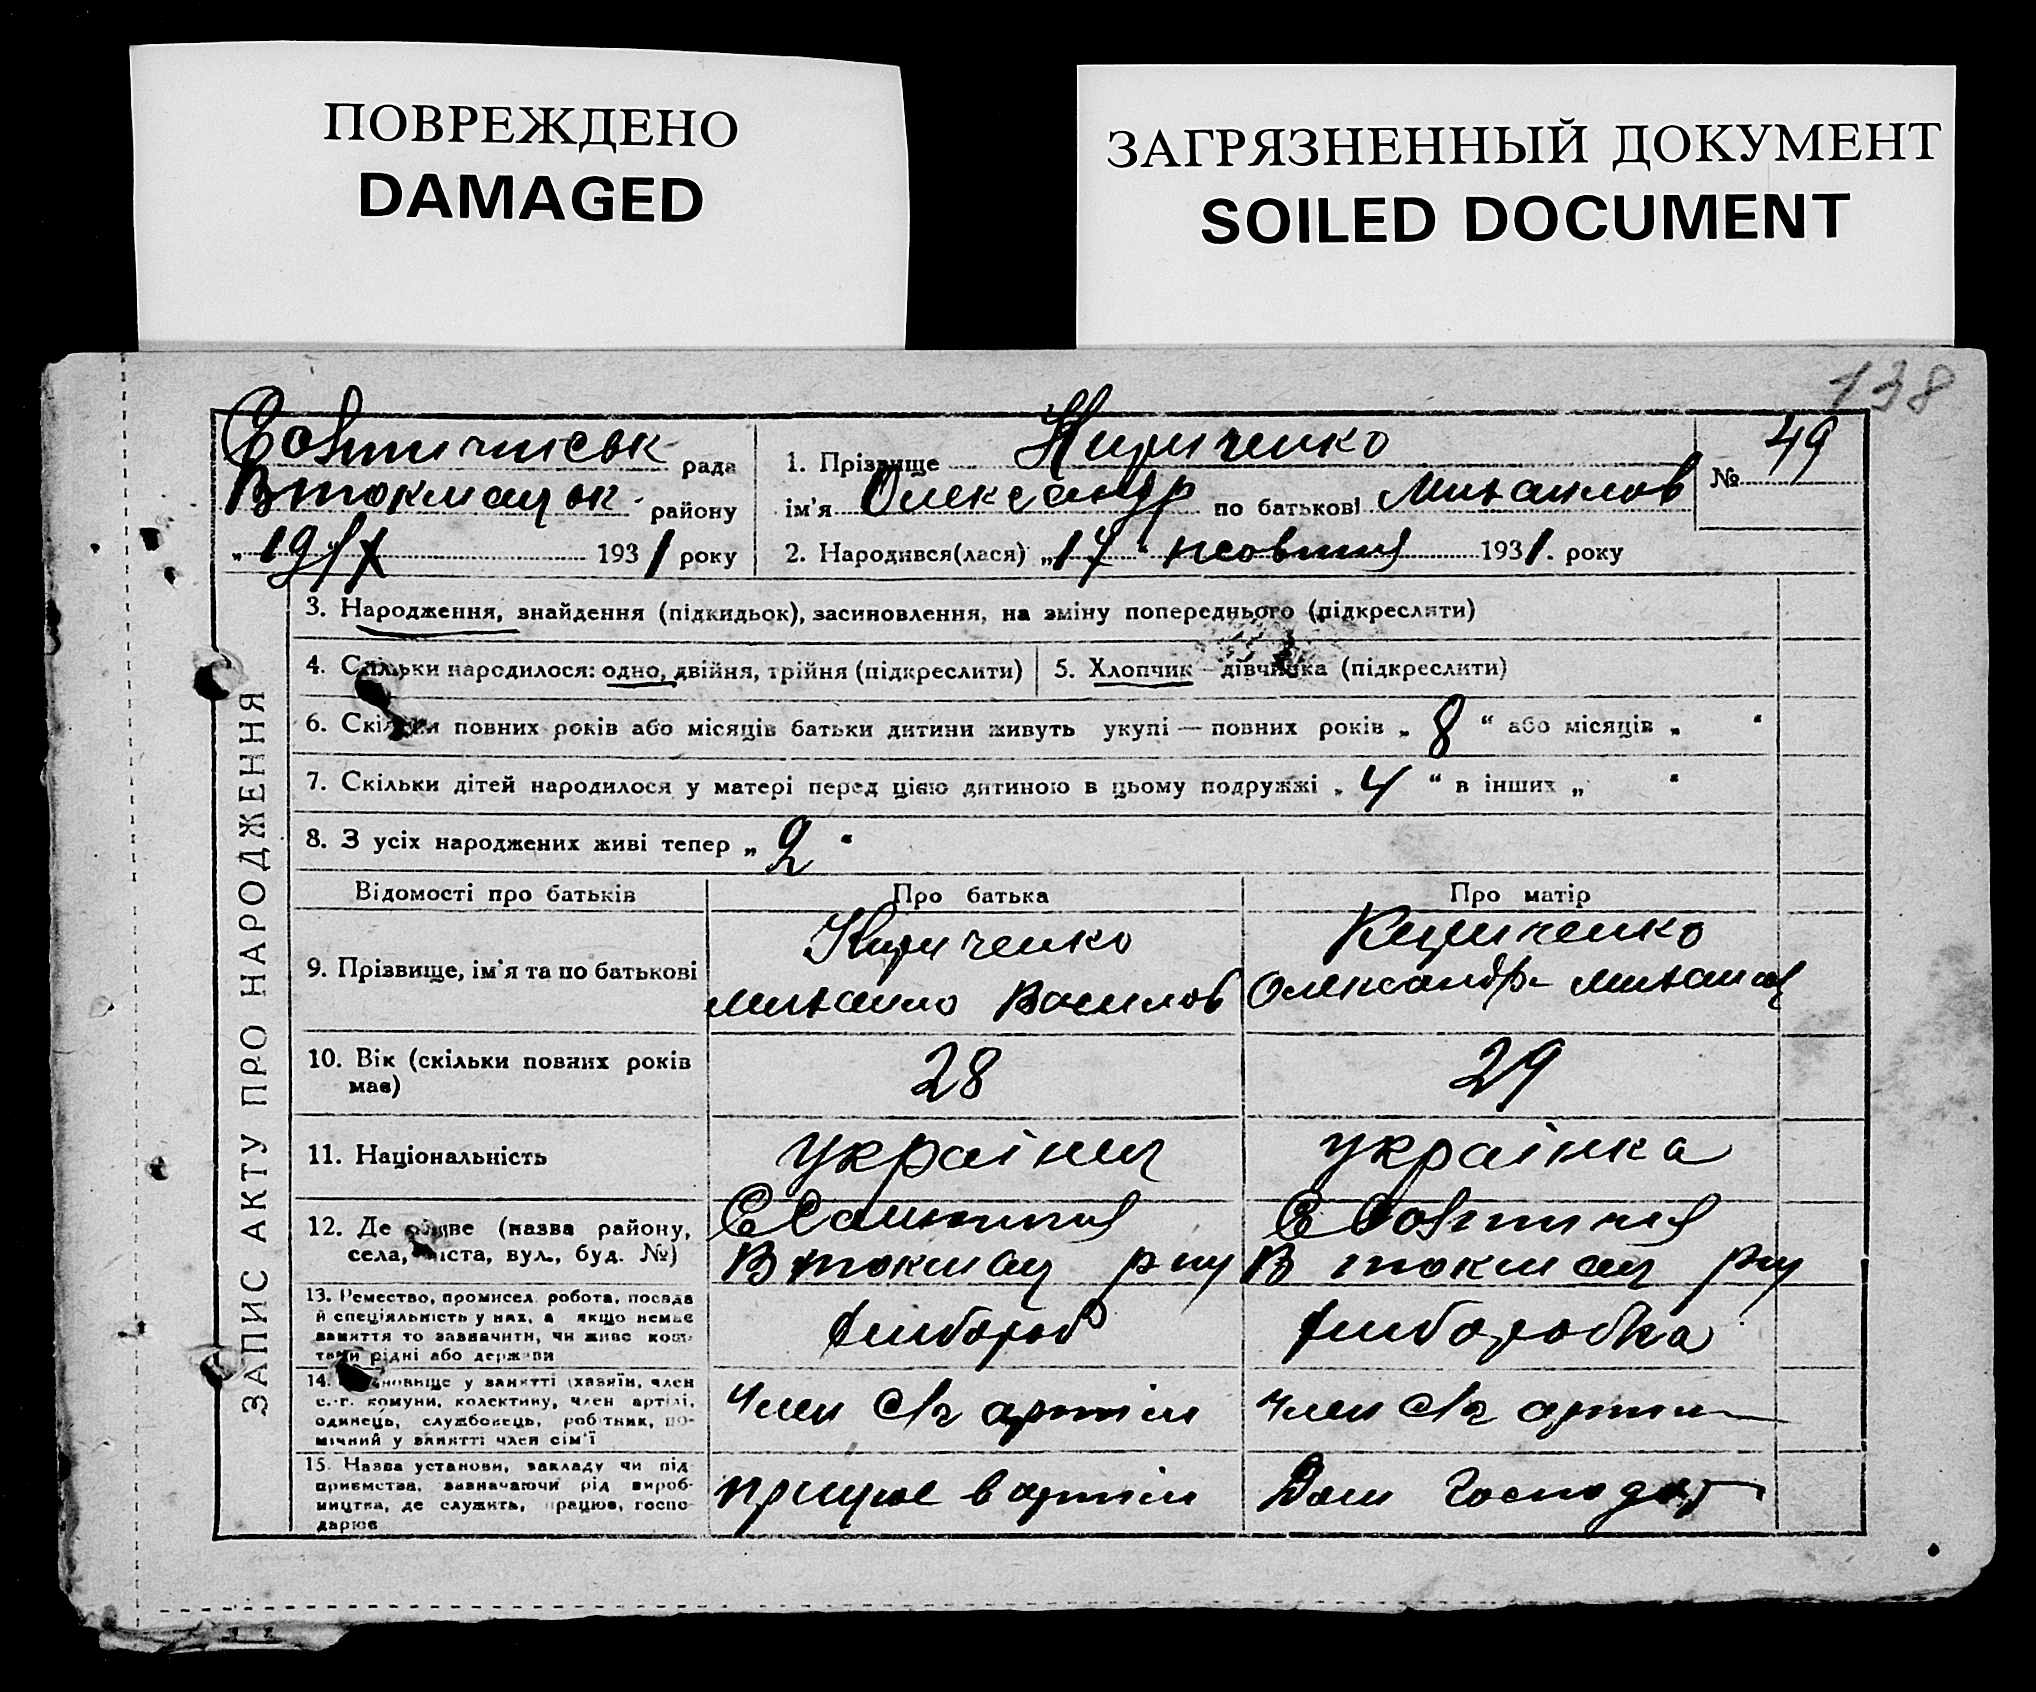 ПОВРЕЖДЕНО
DAMAGED
ЗАГРЯЗНЕННЫЙ ДОКУМЕНТ
SOILED DOCUMENT
138
рада
Втокмацьк району
„19/X 1931 року
1. Прізвище Кириченко
ім'я Олександр по батькові Михайлов
2. Народився(лася) „17“ жовтня 1931. року
№ 49
ЗАПИС АКТУ ПРО НАРОДЖЕННЯ
3. Народження, знайдення (підкидьок), засиновлення, на зміну попереднього (підкреслити)
4. Скільки народилося: одно, двійня, трійня (підкреслити)
5. Хлопчик — дівчинка (підкреслити)
6. Скільки повних років або місяців батьки дитини живуть укупі — повних років „8“ або місяців „ “
7. Скільки дітей народилося у матері перед цією дитиною в цьому подружжі „4“ в інших „ “
8. З усіх народжених живі тепер „2“
Відомості про батьків Про батька Про матір
9. Прізвище, ім'я та по батькові
Кириченко
Михайло Василов
Кириченко
Олександр Михайл
10. Вік (скільки повних років
має)
28
29
11. Національність
українц
українка
12. Де живе (назва району,
села, міста, вул., буд. №)
В токмац р ну
В токмац рну
13. Ремество, промисел, робота, посада
й спеціяльність у них, а якщо немає
заняття то зазначити, чи живе кош-
тами рідні або держави
хлібороб
хліборобка
14. Становище у занятті (хазяїн, член
с.-г. комуни, колективу, член артілі,
одинець, службовець, робітник, по-
мічний у занятті член сім'ї
член с/г артіли
член с/г артіл
15. Назва установи, закладу чи під-
приємства, зазначаючи рід вироб-
ництва, де служить, працює, госпо-
дарює
працює в артіли
Дом господар